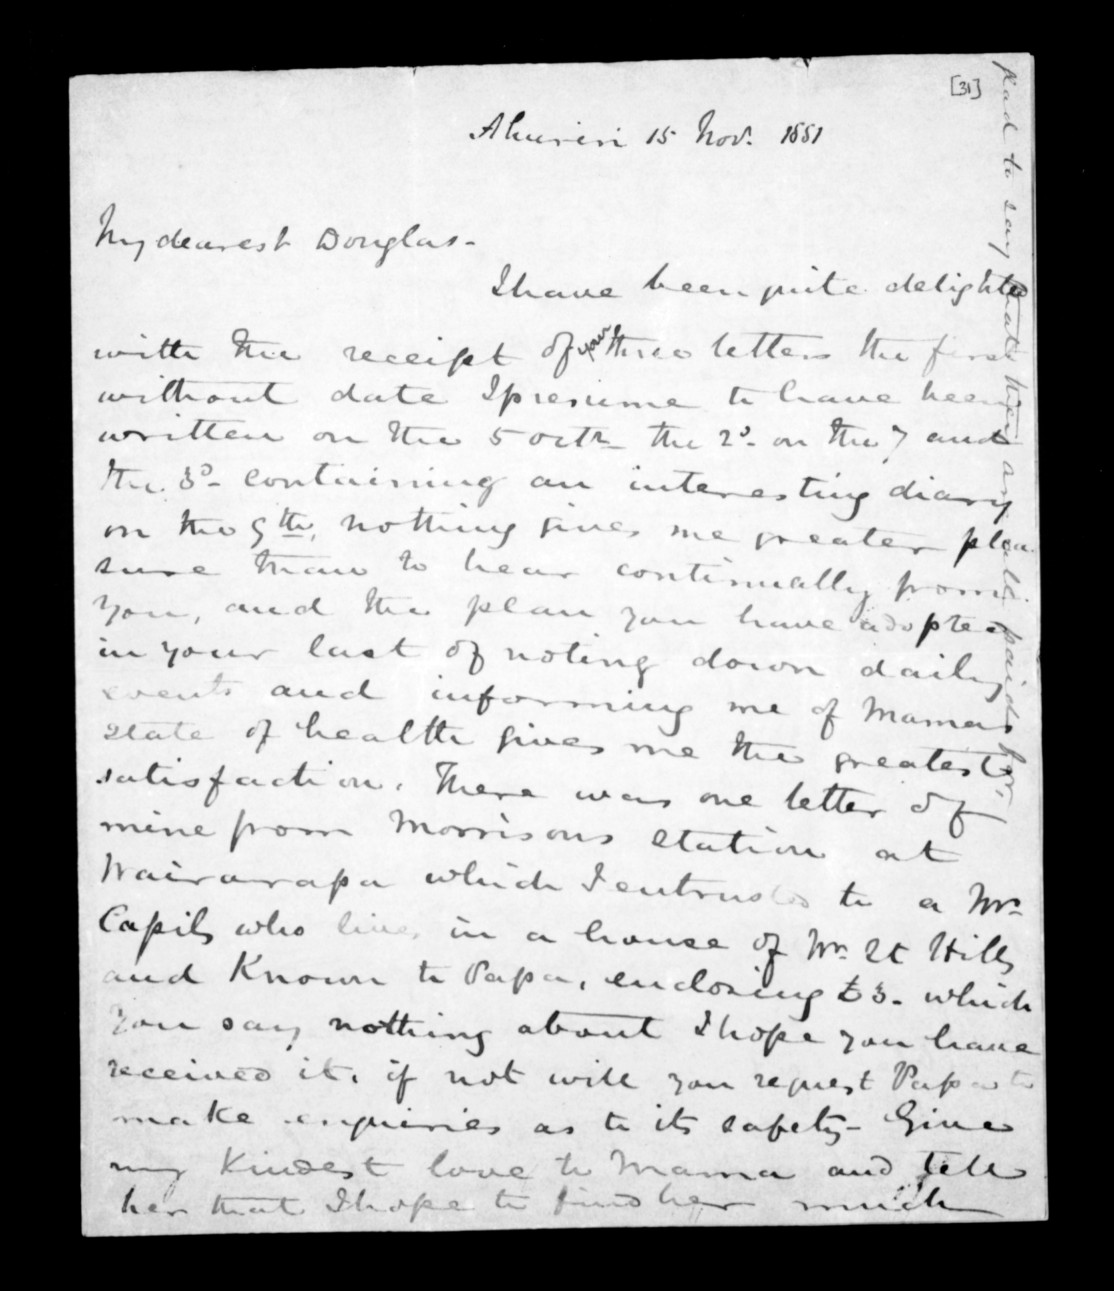 [31]
Ahuriri 15 Nov. 1851
My dearest Douglas -
I have been quite delighted
with the receipt of your three letters the first
without date I presume to have been
written on the 5 octr. the 2d. on the 7 and
the 3d. containing an interesting diary
on the 9th, nothing gives me greater plea
sure than to hear continually from
you, and the plan you have adopted
in your last of noting down daily
events and informing me of Mamas
state of health gives me the greatest
satisfaction. There was one letter of
mine from Morrisons station at
Wairarapa which I entrusted to a Mr.
who lives in a house of Mr. St Hills
and Known to Papa, enclosing £3. which
you say nothing about I hope you have
received it, if not will you request Papa to
make enquiries as to its safety - Give
my Kindest love to Mama and tell
her that I hope to find her much
glad to say that they are all paid for,